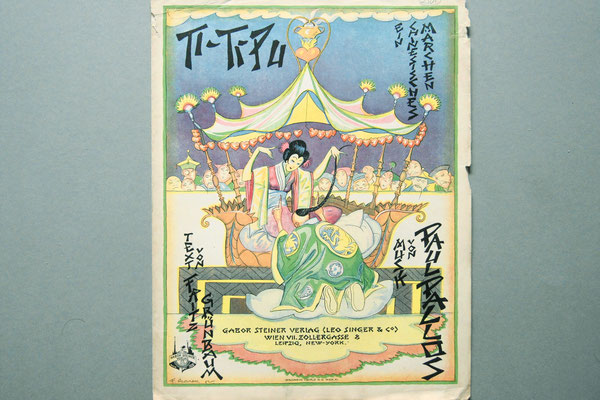 TI-TI-PU
EIN
CHINESISCHES
MÄRCHEN
TEXT VON
FRITZ
GRÜNBAUM
MUSIK
VON
PAUL PALLOS
GABOR STEINER VERLAG (LEO SINGER & Co)
WIEN VII. ZOLLERGASSE 8
LEIPZIG, NEW-YORK.